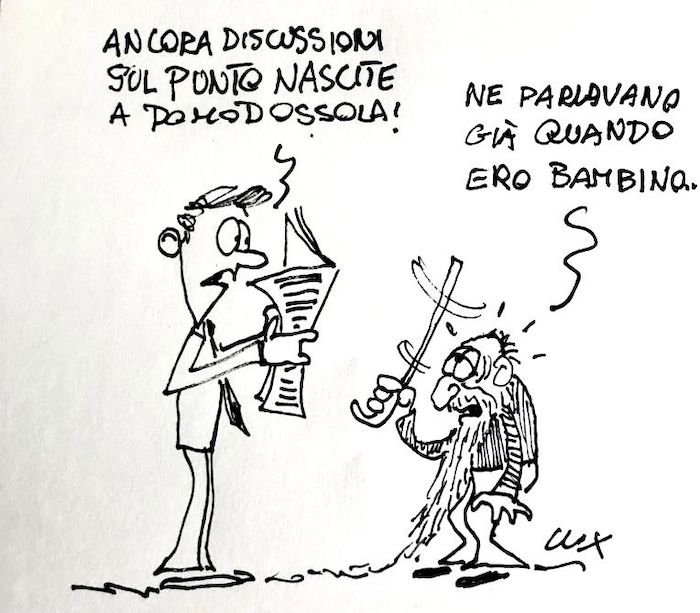 ANCORA DISCUSSIONI
SUL PUNTO NASCITE
A DOMODOSSOLA!
NE PARLAVANO
GIÀ QUANDO
ERO BAMBINO..